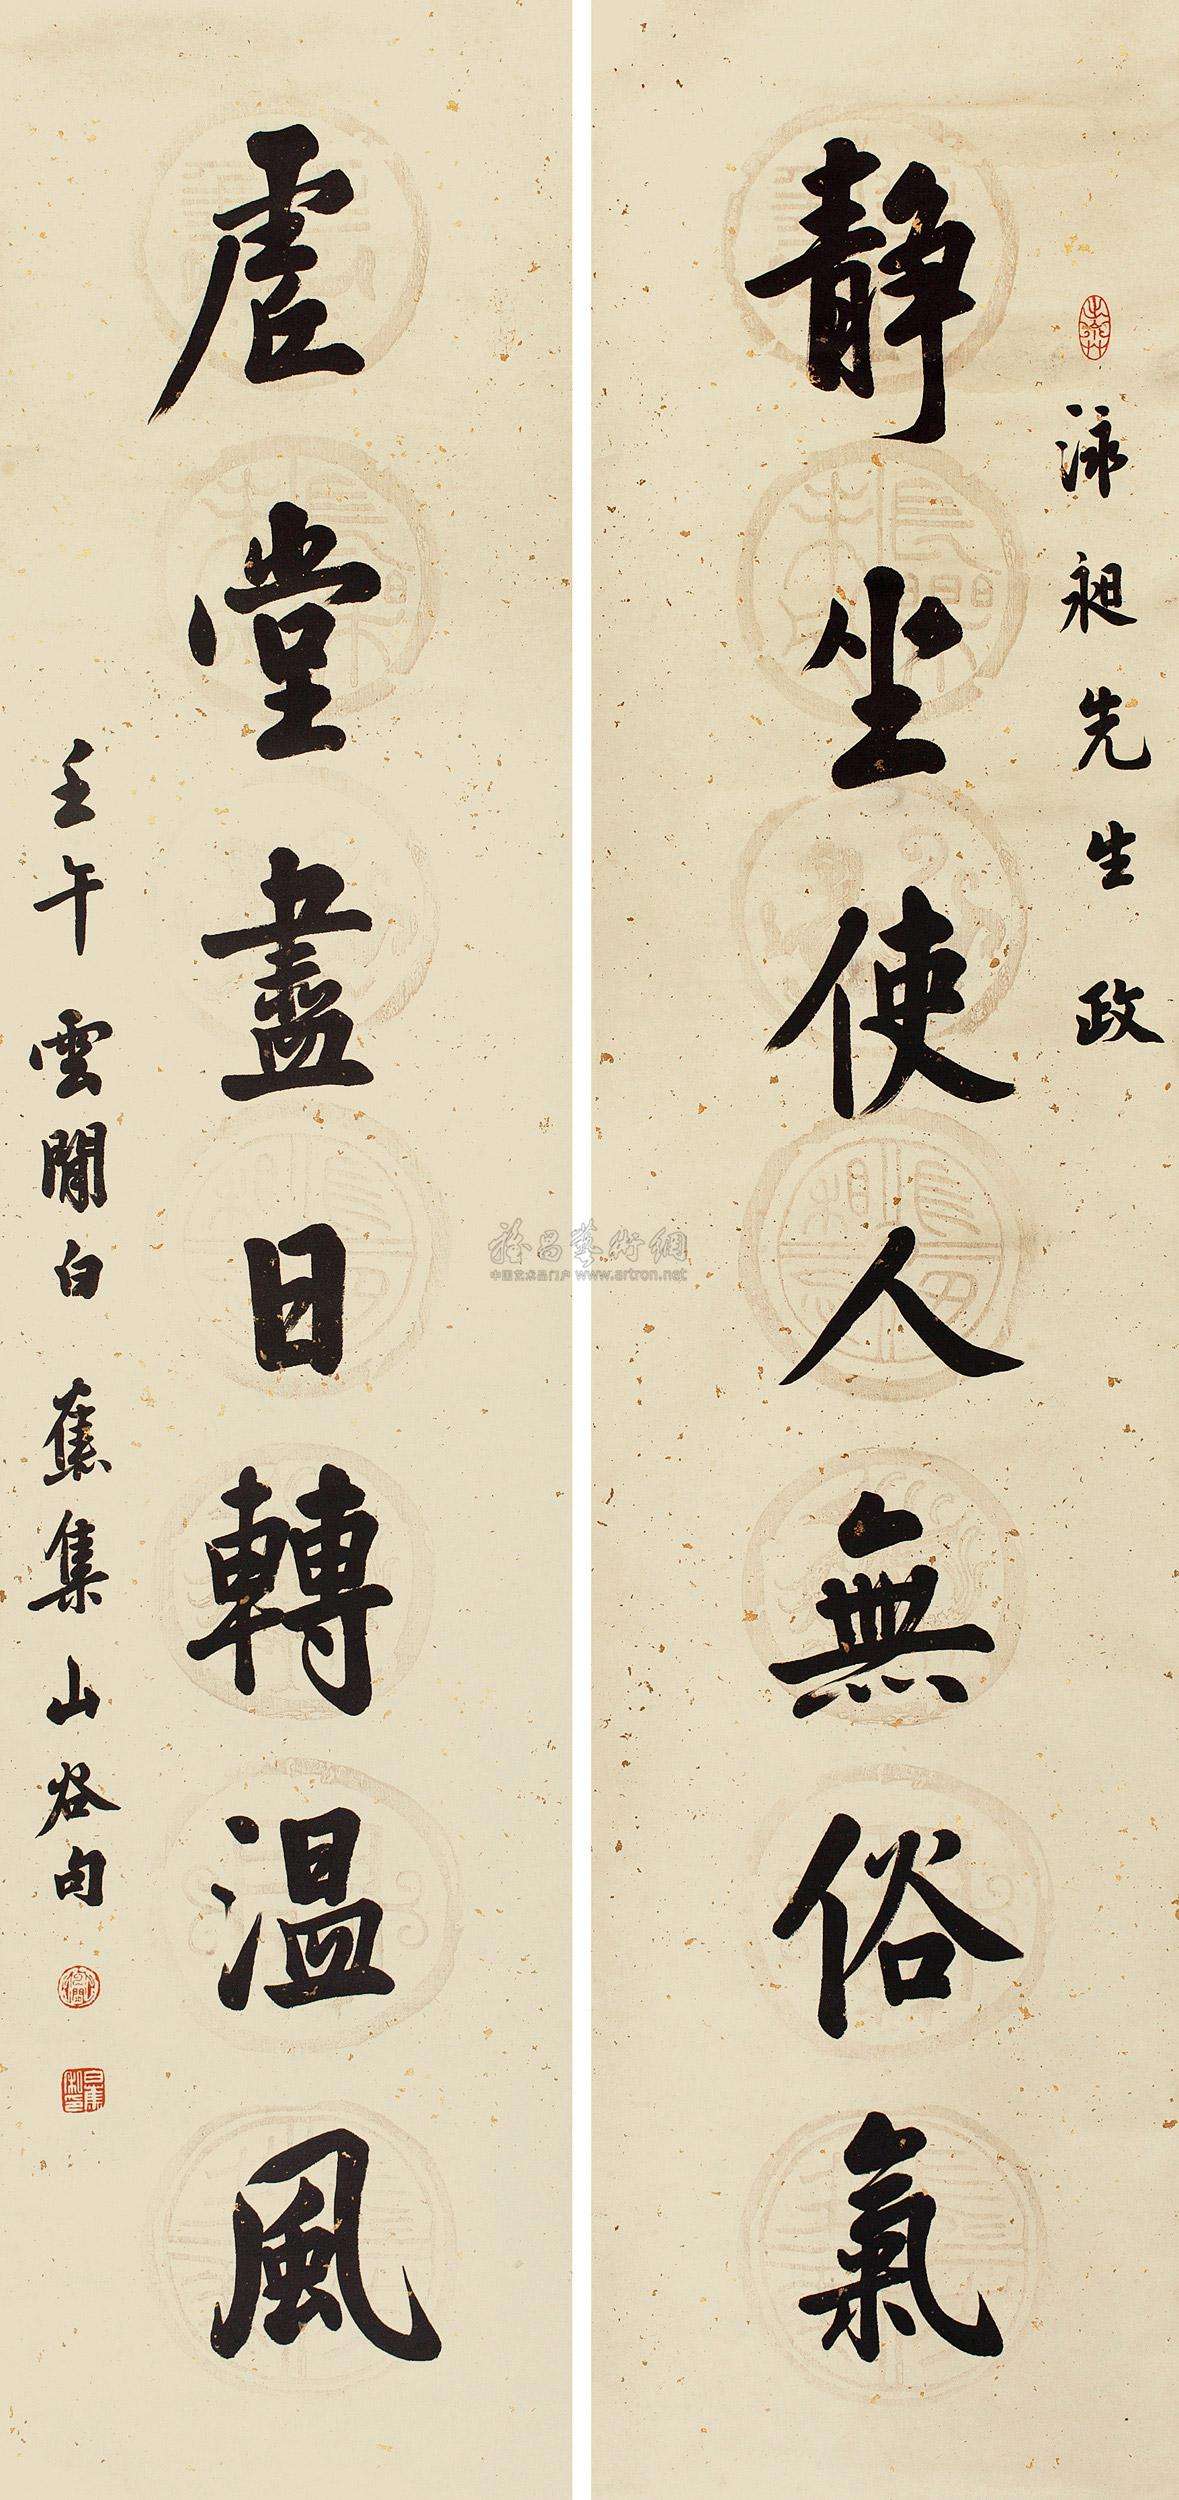 泳昶先生政
靜坐使人無俗氣
虛堂盡日轉溫風
壬午 雲間白蕉集山谷句
雅昌藝術網
中国艺术品门户 www.artron.net